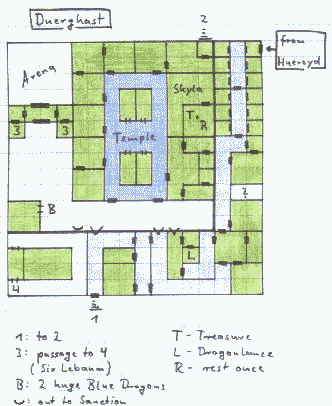 Duerghast
2
from
Huerzyd
Arena
Skyla
T
R
Temple
3
3
2
B
L
4
1
1: to 2
3: passage to 4
(Sir Lebaum)
B: 2 huge Blue Dragons
out to Sanction
T - Treasure
L - Dragonlance
R - rest once